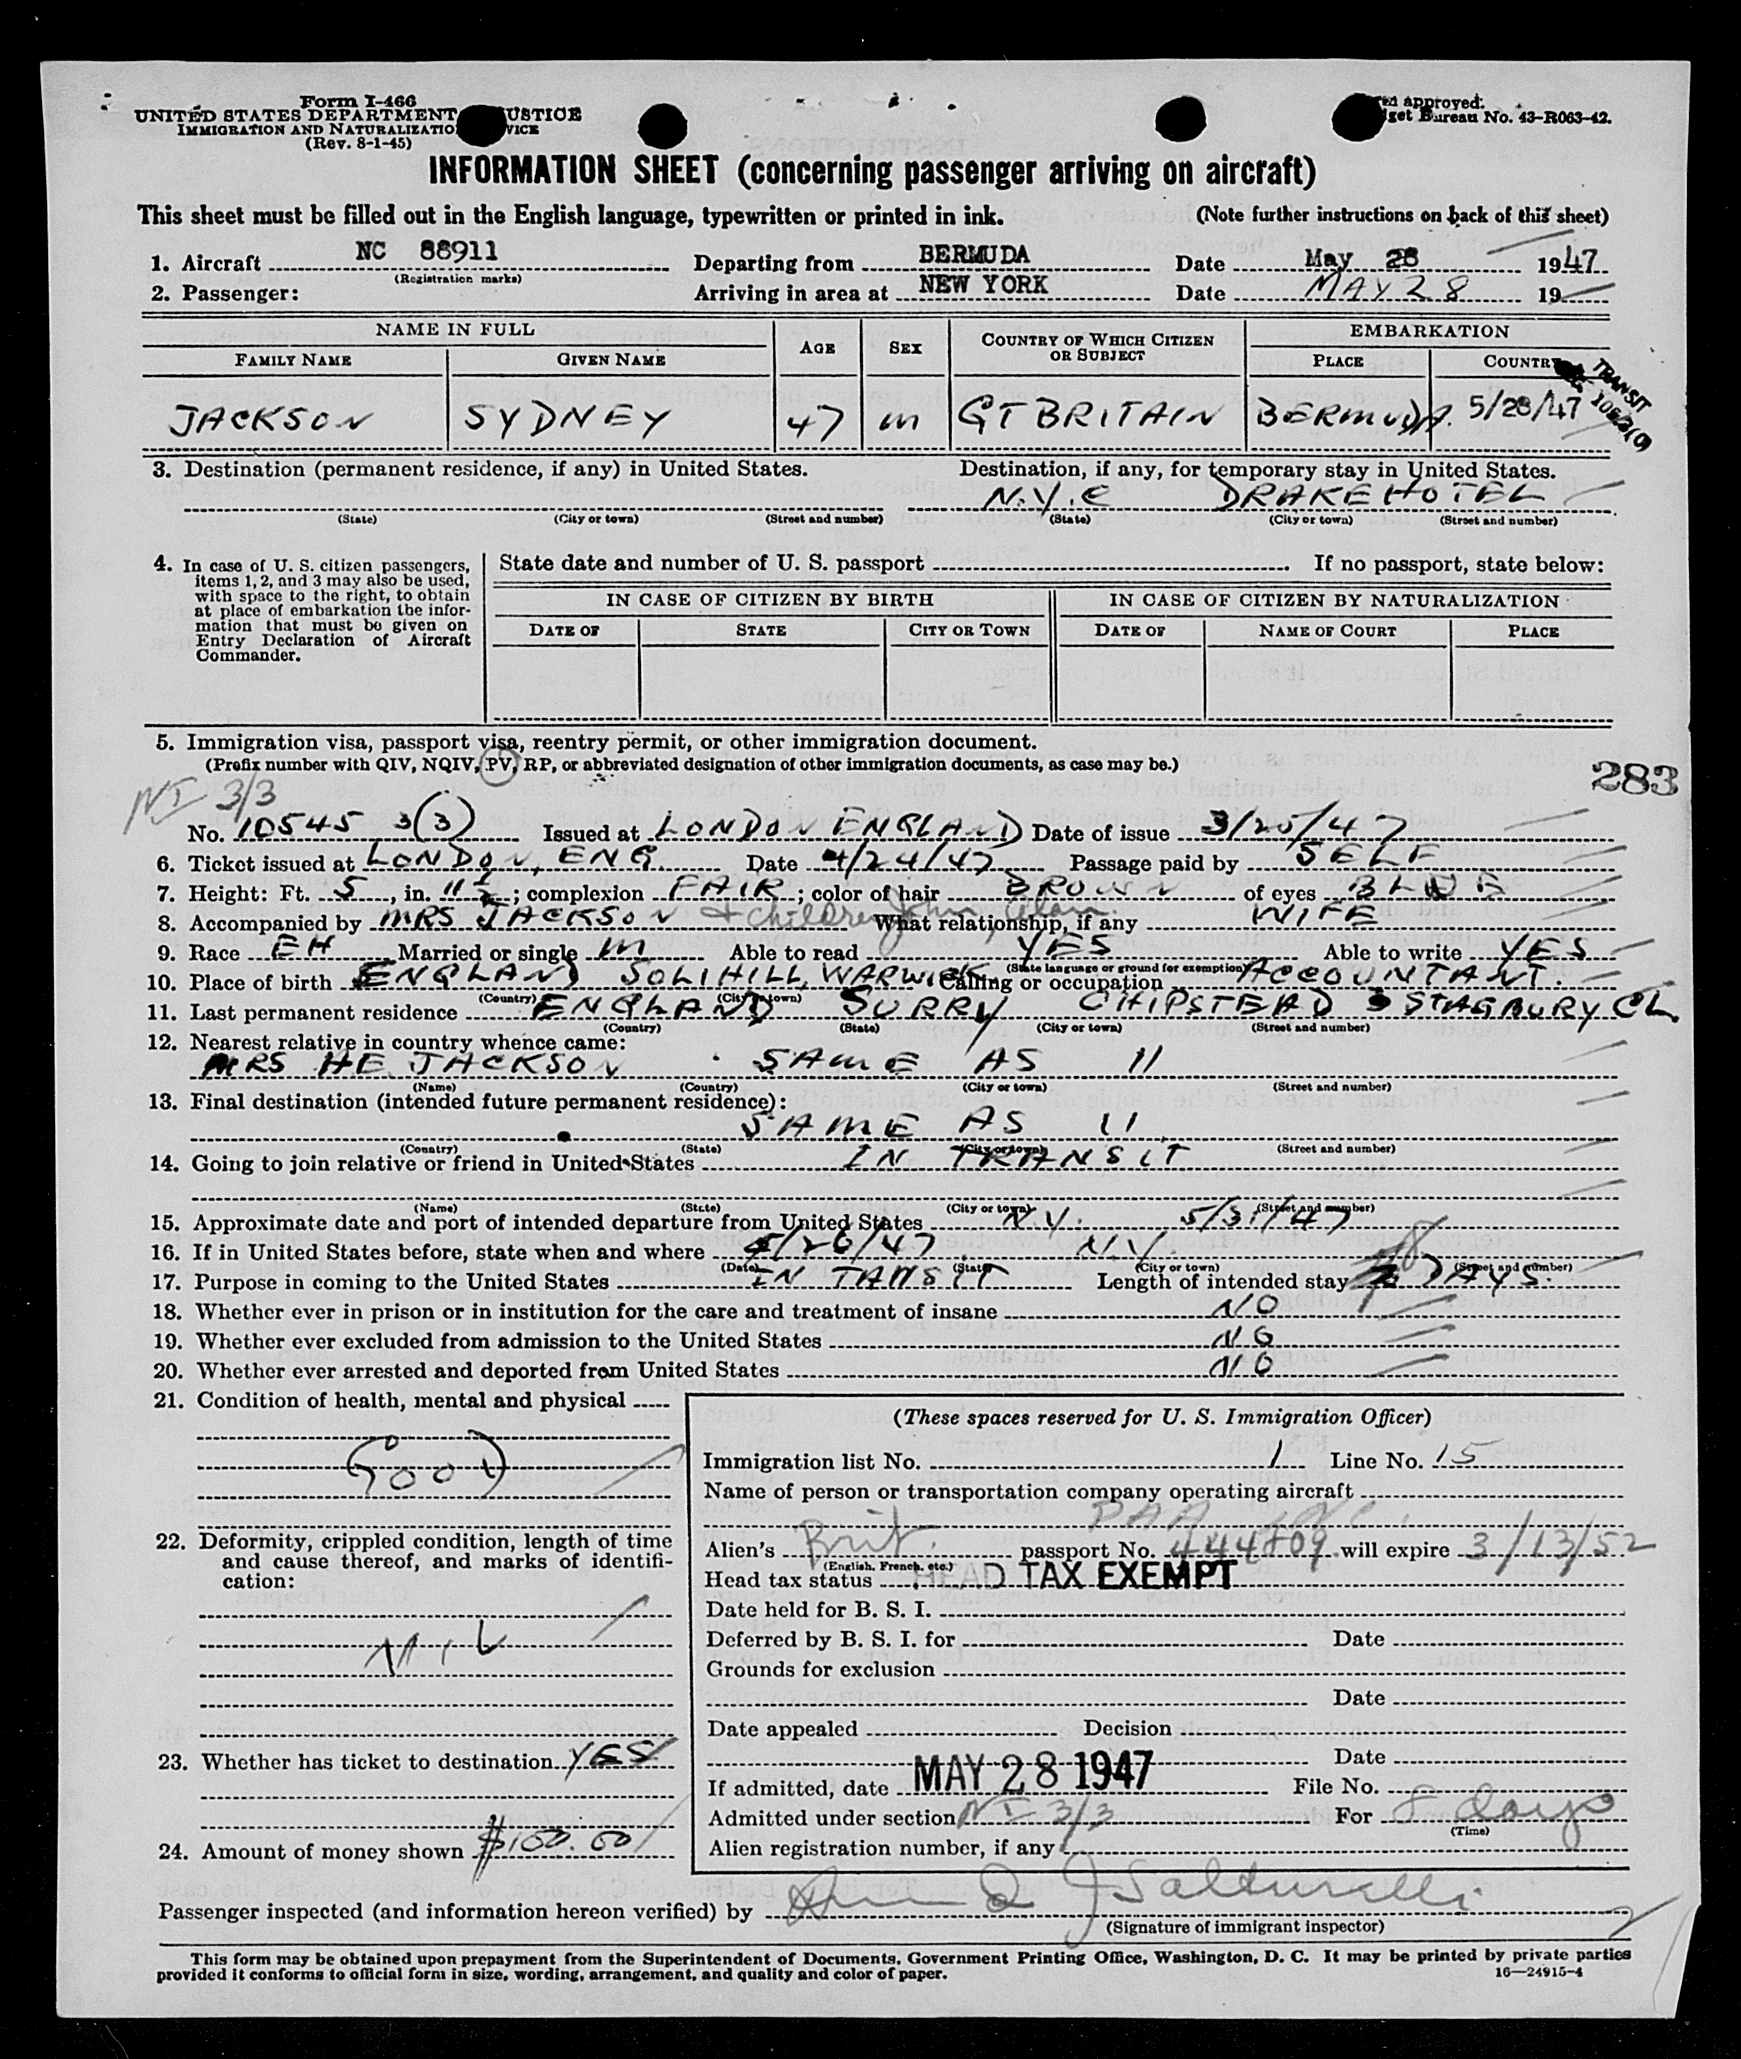 Form I-466
UNITED STATES DEPARTMENT USTICE
IMMIGRATION AND NATURALIZATIO VICE
(Rev. 8-1-45)
approved:
get Bureau No. 43-R063-42.
INFORMATION SHEET (concerning passenger arriving on aircraft)
This sheet must be filled out in the English language, typewritten or printed in ink. (Note further instructions on back of this sheet)
1. Aircraft NC 88911 Departing from BERMUDA Date May 28 1947
(Registration marks)
2. Passenger: Arriving in area at NEW YORK Date MAY 28 19
NAME IN FULL AGE SEX COUNTRY OF WHICH CITIZEN OR SUBJECT EMBARKATION
FAMILY NAME GIVEN NAME PLACE COUNTRY
TRANSIT
JACKSON SYDNEY 47 M GT BRITAIN BERMUDA. 5/28/47
3. Destination (permanent residence, if any) in United States. Destination, if any, for temporary stay in United States.
N.Y.C DRAKE HOTEL
(State) (City or town) (Street and number) (State) (City or town) (Street and number)
4. In case of U. S. citizen passengers, items 1, 2, and 3 may also be used, with space to the right, to obtain at place of embarkation the information that must be given on Entry Declaration of Aircraft Commander.
State date and number of U. S. passport If no passport, state below:
IN CASE OF CITIZEN BY BIRTH IN CASE OF CITIZEN BY NATURALIZATION
DATE OF STATE CITY OR TOWN DATE OF NAME OF COURT PLACE
5. Immigration visa, passport visa, reentry permit, or other immigration document.
(Prefix number with QIV, NQIV, PV, RP, or abbreviated designation of other immigration documents, as case may be.)
283
NI 3/3
No. 10545 3(3) Issued at LONDON ENGLAND Date of issue 3/25/47
6. Ticket issued at LONDON, ENG. Date 4/24/47 Passage paid by SELF
7. Height: Ft. 5, in. 11½; complexion FAIR; color of hair BROWN of eyes BLUE
8. Accompanied by MRS JACKSON + children John, Alan. What relationship, if any WIFE
9. Race EH Married or single M Able to read YES Able to write YES
(State language or ground for exemption)
10. Place of birth ENGLAND SOLIHILL, WARWICK Calling or occupation ACCOUNTANT.
(Country) (City or town)
11. Last permanent residence ENGLAND SURRY CHIPSTEAD 3 STAGBURY CL.
(Country) (State) (City or town) (Street and number)
12. Nearest relative in country whence came:
MRS HE JACKSON SAME AS 11
(Name) (Country) (City or town) (Street and number)
13. Final destination (intended future permanent residence):
SAME AS 11
(Country) (State) (City or town) (Street and number)
14. Going to join relative or friend in United States IN TRANSIT
(Name) (State) (City or town) (Street and number)
15. Approximate date and port of intended departure from United States N.Y. 5/31/47
16. If in United States before, state when and where 4/26/47 N.Y.
(Date) (State) (City or town) (Street and number)
17. Purpose in coming to the United States IN TANSIT Length of intended stay 8 DAYS.
18. Whether ever in prison or in institution for the care and treatment of insane NO
19. Whether ever excluded from admission to the United States NO
20. Whether ever arrested and deported from United States NO
21. Condition of health, mental and physical
GOOD
22. Deformity, crippled condition, length of time and cause thereof, and marks of identification:
NIL
23. Whether has ticket to destination YES
24. Amount of money shown $100.00
(These spaces reserved for U. S. Immigration Officer)
Immigration list No. 1 Line No. 15
Name of person or transportation company operating aircraft
PAA
Alien's Brit. passport No. will expire 3/13/52
(English, French, etc.)
Head tax status HEAD TAX EXEMPT
Date held for B. S. I.
Deferred by B. S. I. for Date
Grounds for exclusion
Date
Date appealed Decision
Date
If admitted, date MAY 28 1947 File No.
Admitted under section NI 3/3 For 8 days
(Time)
Alien registration number, if any
Passenger inspected (and information hereon verified) by
(Signature of immigrant inspector)
This form may be obtained upon prepayment from the Superintendent of Documents, Government Printing Office, Washington, D. C. It may be printed by private parties
provided it conforms to official form in size, wording, arrangement, and quality and color of paper. 16—24915-4